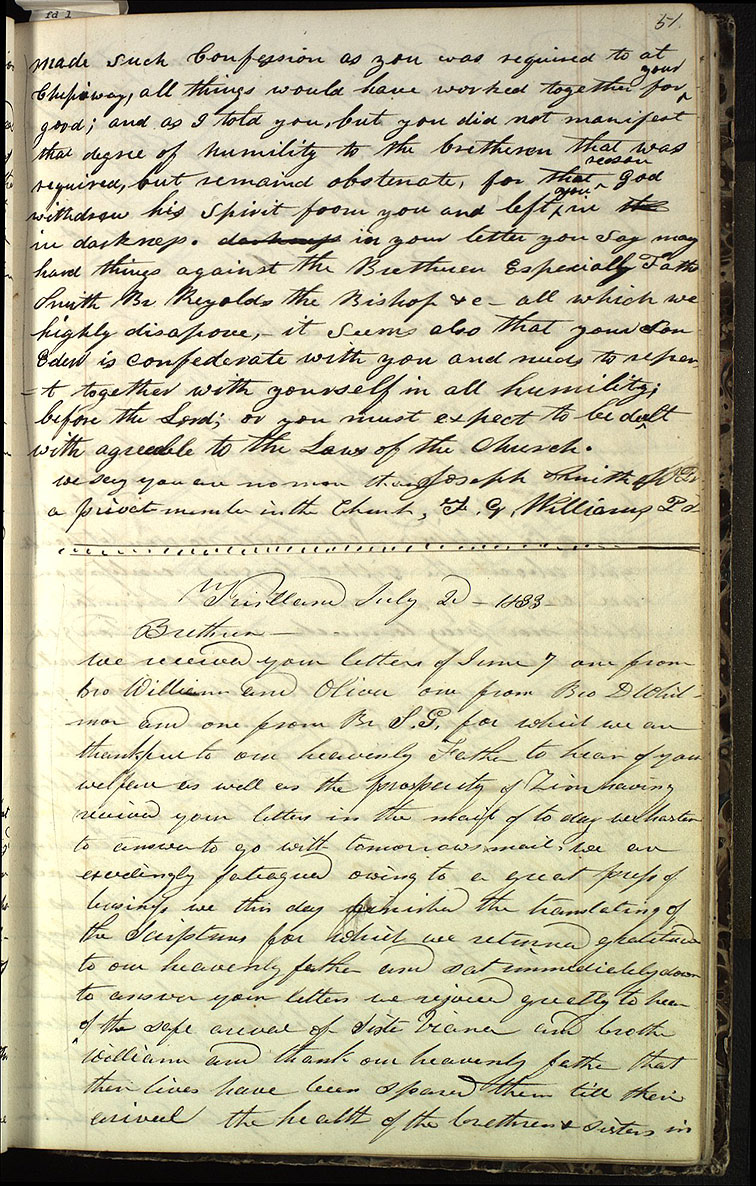 fd 1
51.
made such Confession as you was required to at
Chipiway, all things would have worked together for your
good; and as I told you, but you did not manifest
that degree of humility to the bretheren that was
required, but remaind obstenate, for that reason God
withdrew his Spirit from you and left you in the
in darkness. darkness in your letter you say many
hard things against the Brethren Especially Father
Smith Br Reyolds the Bishop & c - all which we
highly disapove, - it seems also that your Son
Eden is confederate with you and needs to repen
-t together with yourself in all humility;
before the Lord; or you must expect to be dealt
with agreeable to the Laws of the Church.
we say you are no more than Joseph Smith Jr Pr.
a privat member in the Church, F. G. Williams Pd
Kirtland July 2d - 1833
Brethren -
we received your letters of June 7 one from
bro William and Oliver one from Bro D Whit-
mor and one from Br S.G. for which we are
thankful to our heavenly Father to hear of your
welfare as well as the prosperity of Zion having
received your letters in the mail of to day we hasten
to answer to go with tomorrows mail, we are
exeedingly fatagued owing to a great press of
businss we this day finished the translating of
the Scriptures for which we returned gratitude
to our heavenly father and sat immediately down
to answer your letters we rejoice greatly to hear
of the safe arival of Sister Viana and brother
William and thank our heavenly father that
their lives have been spared them till their
arivel the health of the brethren & sisters in